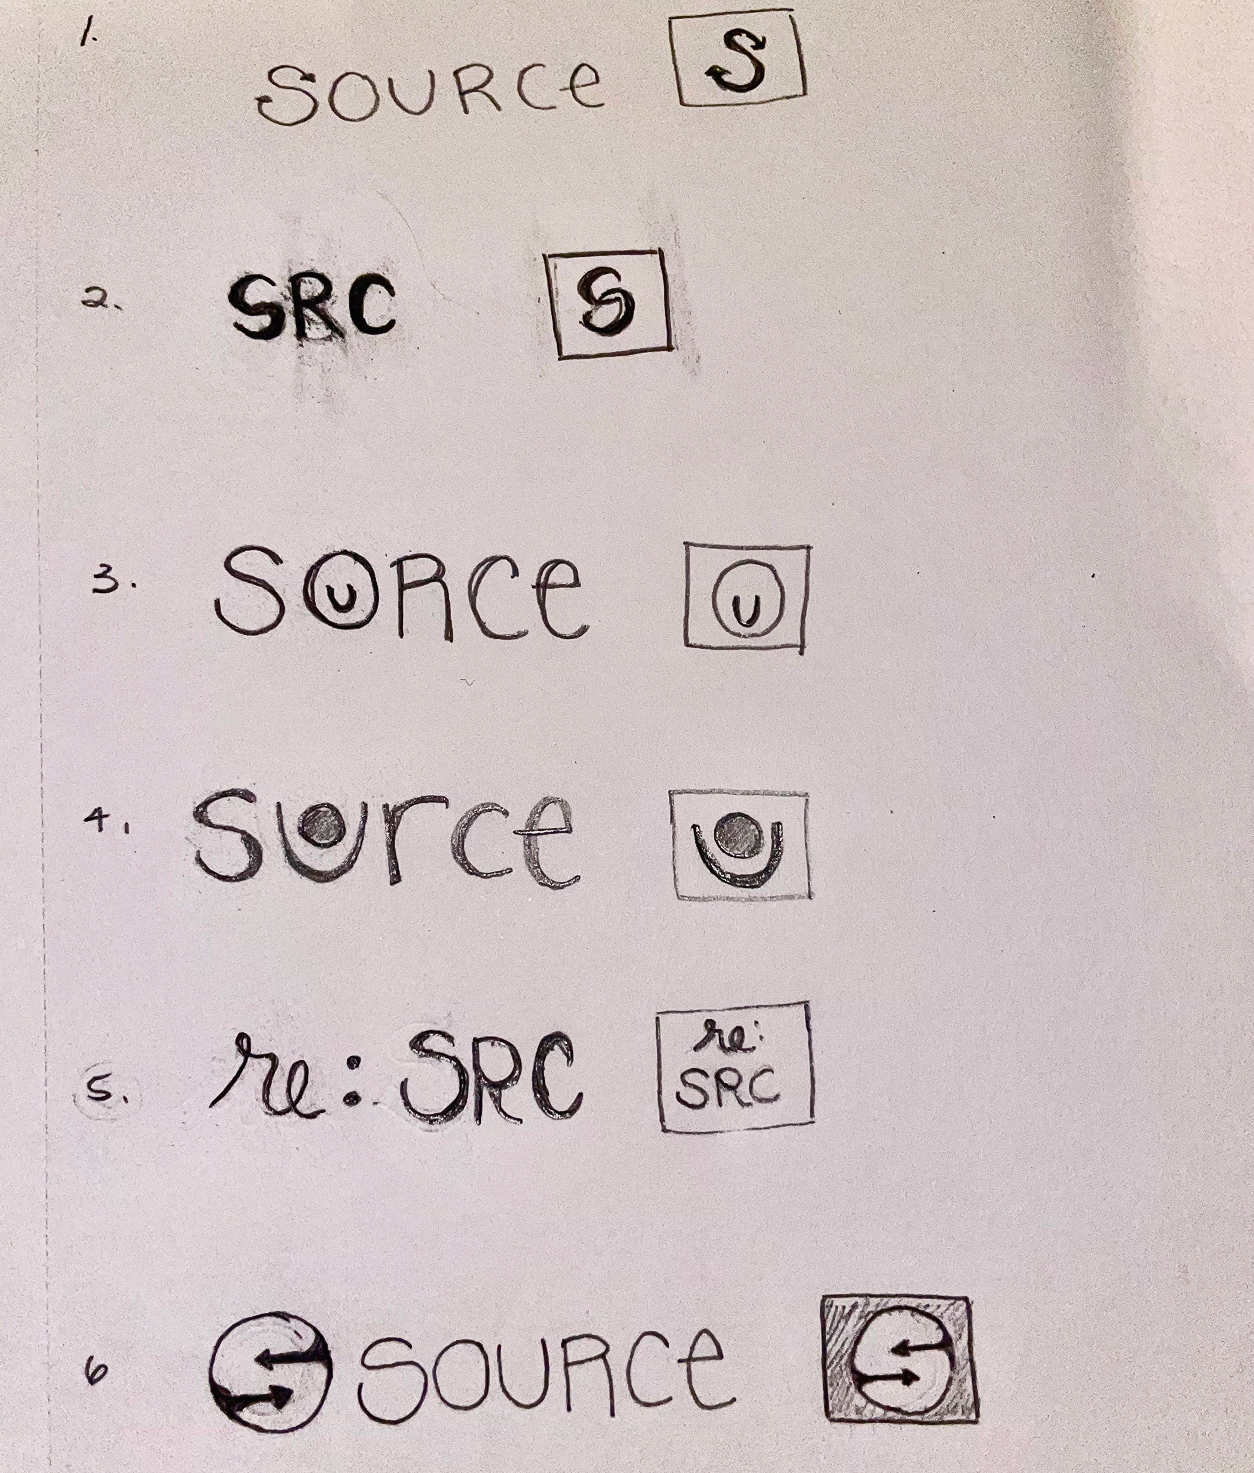 1.
SOURCe S
2. SRC S
3. SOURCe U
4. Source
5. re: SRC re:
SRC
6 S SOURCe S